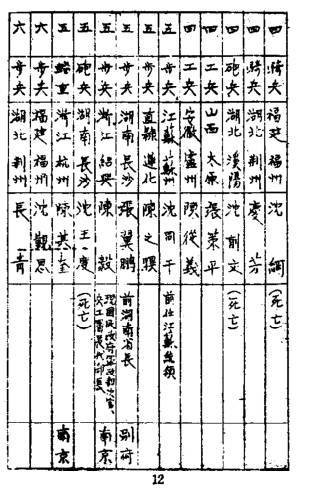 四 騎兵 福建 福州 沈綱 (死亡)
四 騎兵 湖北 荆州 慶芳
四 砲兵 湖北 漢陽 沈尚文 (死亡)
四 工兵 山西 太原 張策平
四 工兵 安徽 廬州 陳從義
五 步兵 江蘇 蘇州 沈同午 前任江蘇統領
五 步兵 直隸 遵化 陳之驥
五 步兵 湖南 長沙 張翼鵬 前湖南省長 別府
五 步兵 浙江 紹興 陳毅 現國民政府軍政部次長、
兵工署長 南京
五 砲兵 湖南 長沙 沈王慶 (死亡)
五 輜重 浙江 杭州 陳 奎 南京
六 步兵 福建 福州 沈觀恩
六 步兵 湖北 荆州 長青
12